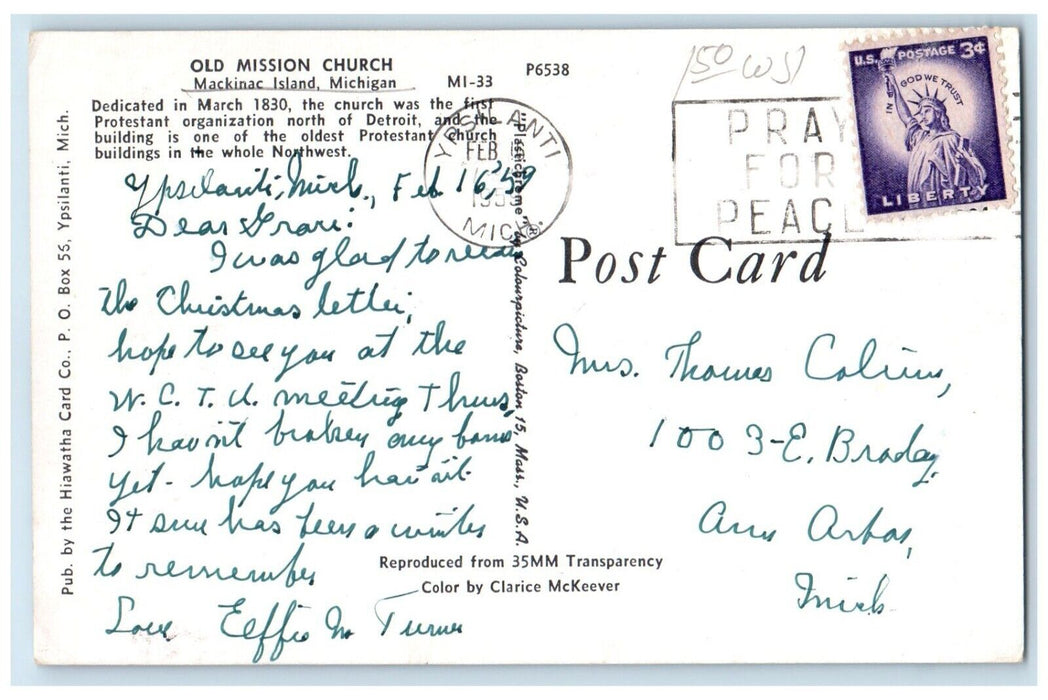 OLD MISSION CHURCH
Mackinac Island, Michigan
MI-33
P6538
Dedicated in March 1830, the church was the first
Protestant organization north of Detroit, and the
building is one of the oldest Protestant church
buildings in the whole Northwest.
Pub. by the Hiawatha Card Co., P. O. Box 55, Ypsilanti, Mich.
"Plastichrome"® by Colourpicture, Boston 15, Mass., U.S.A.
YPSILANTI
FEB
MICH
150
PRAY
FOR
PEACE
U.S. POSTAGE 3¢
IN GOD WE TRUST
LIBERTY
Post Card
Ypsilanti, Mich., Feb. 16, 59
Dear
I was glad to
the Christmas letter,
hope to see you at the
W. C. T. U. meeting Thurs,
I hav'nt broken any bones
yet - hope you hav'nt
It sure has been a winter
to remember
Love Effie M Turner
Mrs. Thomas
1003-E.
Ann Arbor,
Mich
Reproduced from 35MM Transparency
Color by Clarice McKeever